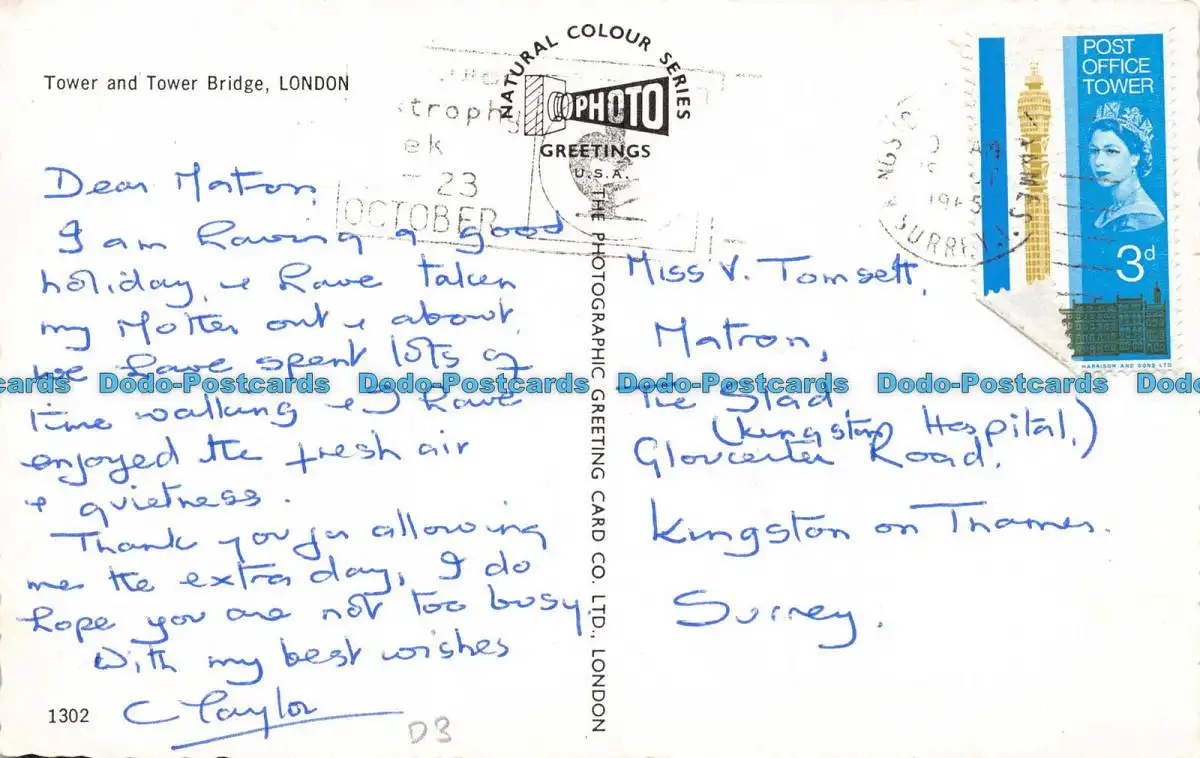 Tower and Tower Bridge, LONDON
NATURAL COLOUR SERIES
PHOTO
GREETINGS
U.S.A.
THE PHOTOGRAPHIC GREETING CARD CO. LTD., LONDON
trophy
ek
23
OCTOBER
SURREY
POST
OFFICE
TOWER
3d
HARRISON AND SONS LTD
Dear Matron,
I am having a good
holiday, & have taken
my Mother out & about,
we have spent lots of
time walking & I have
enjoyed the fresh air
& quietness.
Thank you for allowing
me the extra day, I do
hope you are not too busy.
With my best wishes
C Taylor
1302
D3
Miss V. Tomsett,
Matron,
The Slad
(Kingston Hospital,)
Gloucester Road.
Kingston on Thames.
Surrey.
Dodo-Postcards Dodo-Postcards Dodo-Postcards Dodo-Postcards